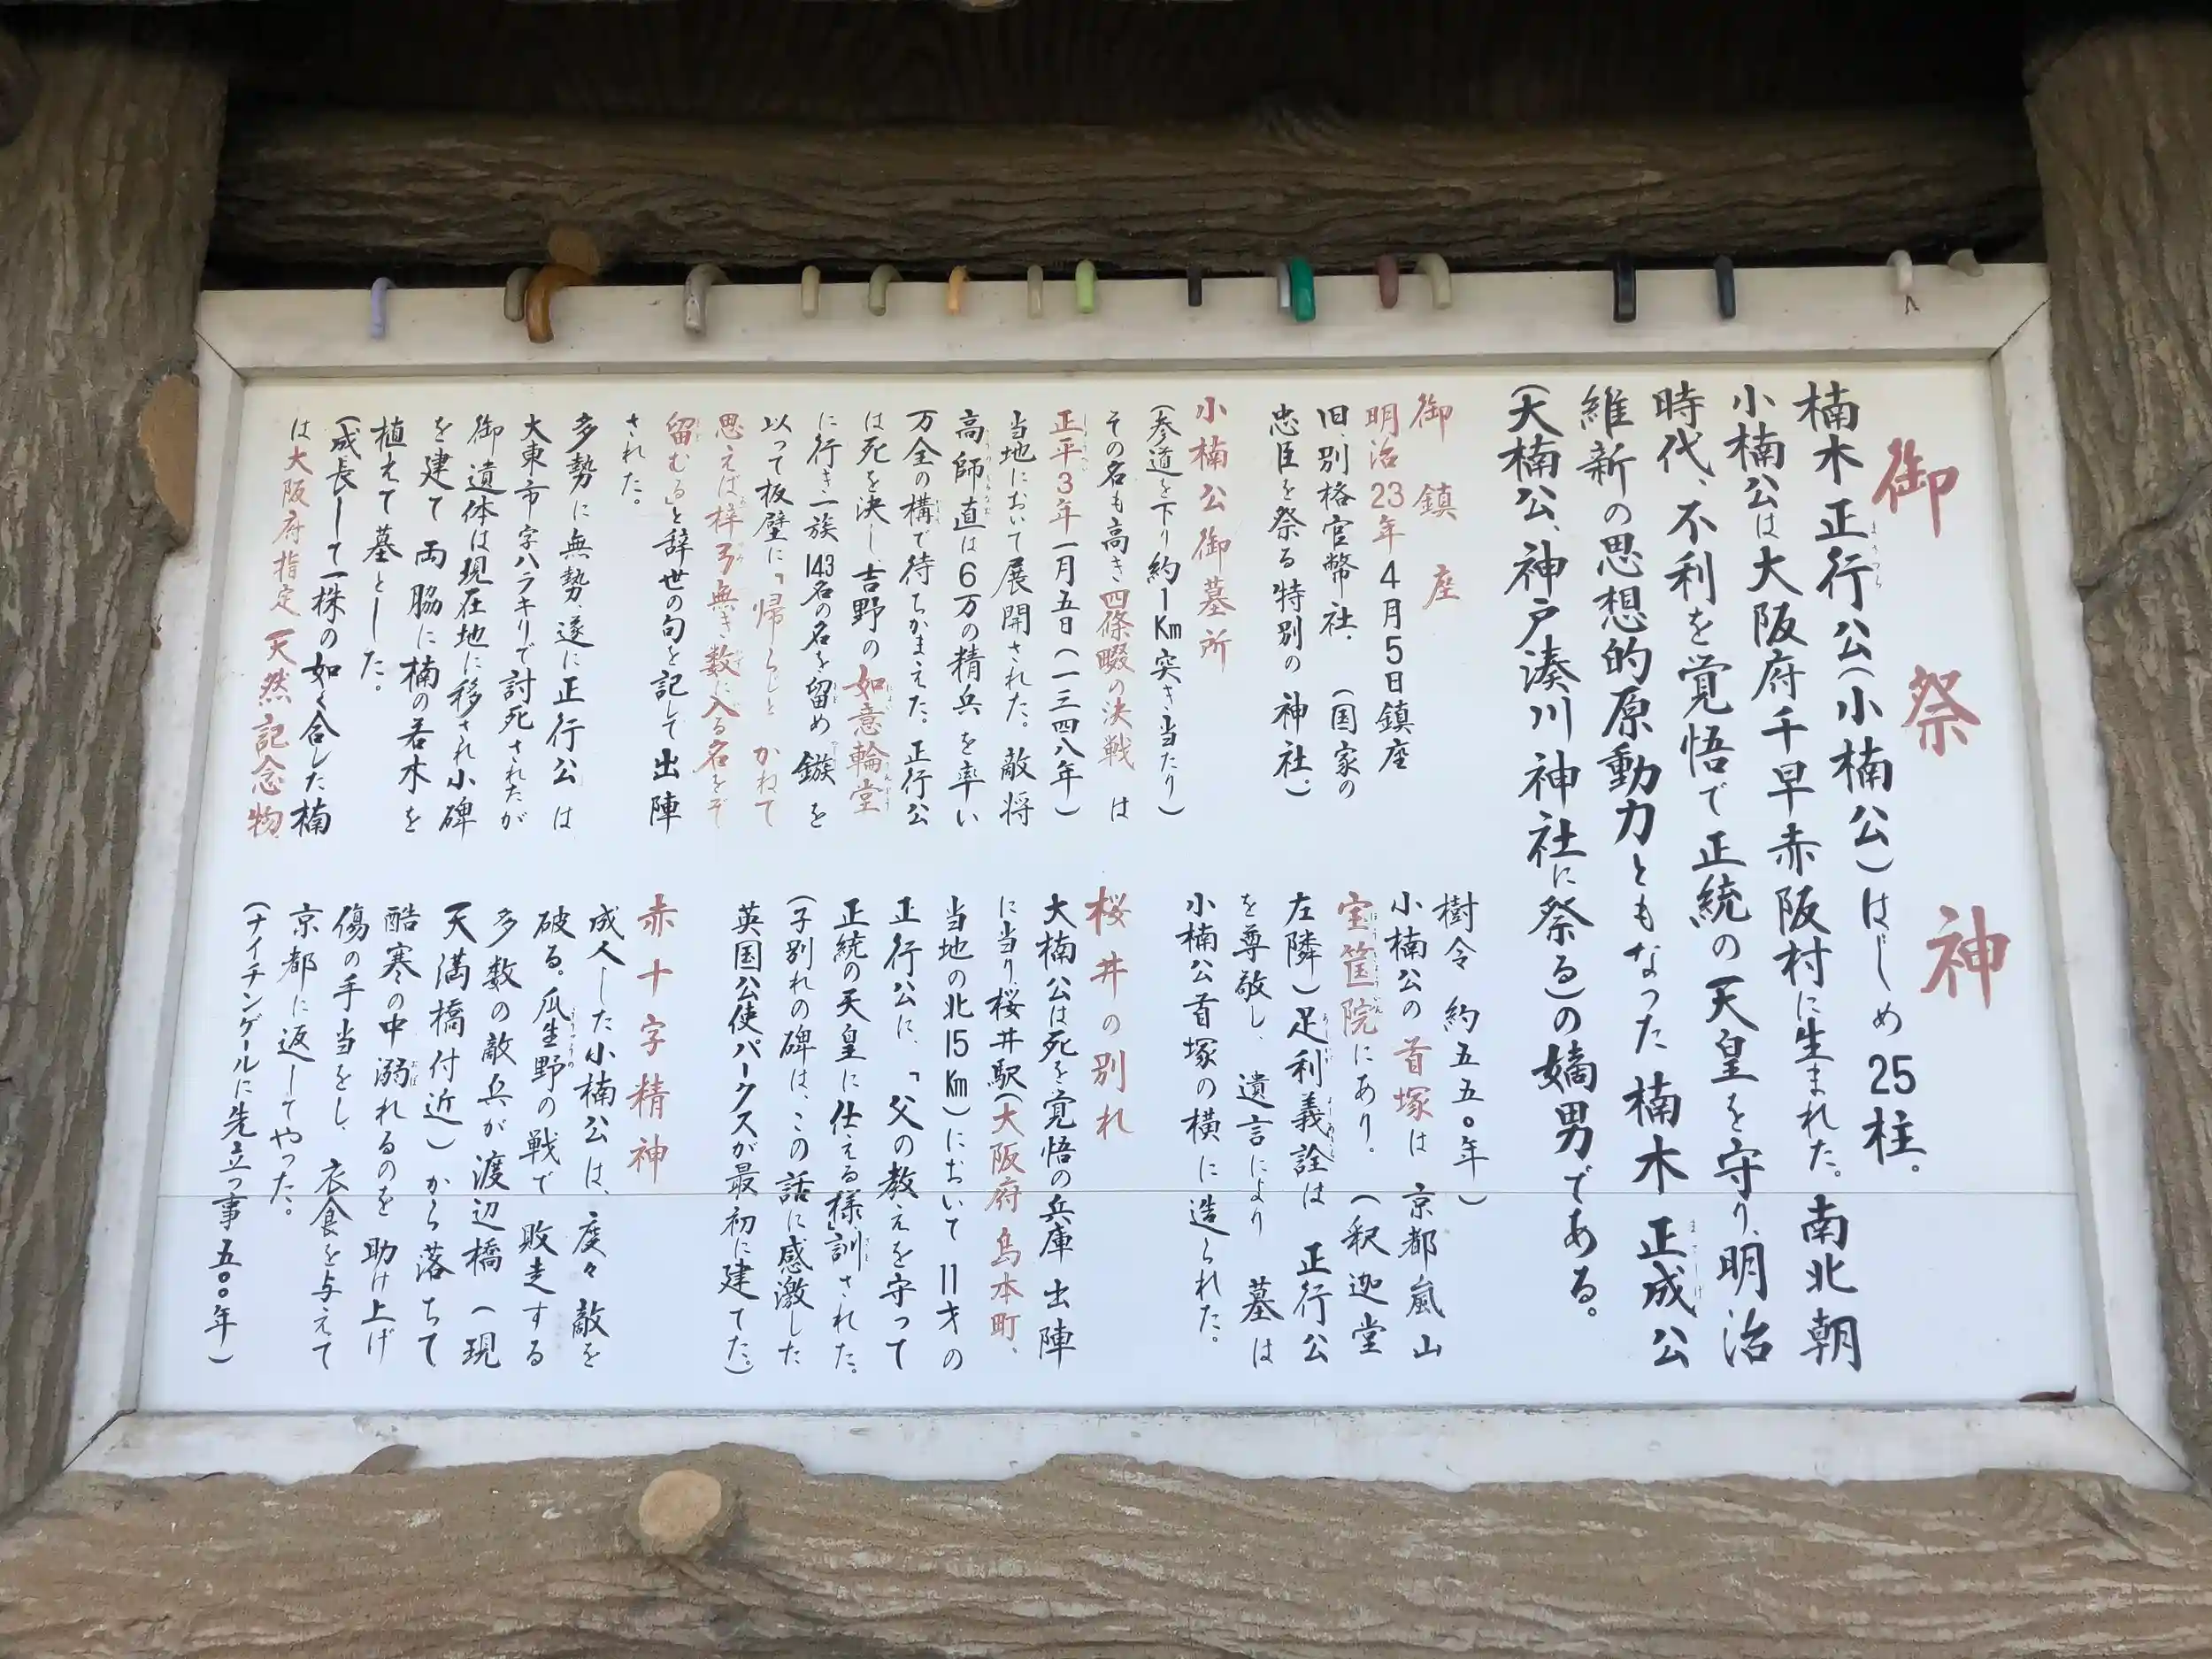 御祭神
楠木正行公(小楠公)はじめ25柱。
小楠公は大阪府千早赤阪村に生まれた。南北朝
時代、不利を覚悟で正統の天皇を守り、明治
維新の思想的原動力ともなった楠木正成公
(大楠公、神戸湊川神社に祭る)の嫡男である。
御鎮座
明治23年4月5日鎮座
旧、別格官幣社、(国家の
忠臣を祭る特別の神社。)
小楠公御墓所
(参道を下り約1Km突き当たり)
その名も高き四條畷の決戦は
正平3年一月五日(一三四八年)
当地において展開された。敵将
高師直は6万の精兵を率い
万全の構で待ちかまえた。正行公
は死を決し、吉野の如意輪堂
に行き一族143名の名を留め鏃を
以って板壁に「帰らじとかねて
思えば梓弓無き数に入る名をぞ
留むる」と辞世の句を記して出陣
された。
多勢に無勢、遂に正行公は
大東市字ハラキリで討死されたが
御遺体は現在地に移され小碑
を建て両脇に楠の若木を
植えて墓とした。
(成長して一株の如く合した楠
は大阪府指定天然記念物、
樹令約五五〇年)
小楠公の首塚は京都嵐山
宝筐院にあり。(釈迦堂
左隣)足利義詮は正行公
を尊敬し、遺言により墓は
小楠公首塚の横に造られた。
桜井の別れ
大楠公は死を覚悟の兵庫出陣
に当り、桜井駅(大阪府島本町、
当地の北15Km)において11才の
正行公に、「父の教えを守って
正統の天皇に仕える様」訓された。
(子別れの碑は、この話に感激した
英国公使パークスが最初に建てた。)
赤十字精神
成人した小楠公は、度々敵を
破る。瓜生野の戦で敗走する
多数の敵兵が渡辺橋(現
天満橋付近)から落ちて
酷寒の中溺れるのを助け上げ
傷の手当をし、衣食を与えて
京都に返してやった。
(ナイチンゲールに先立つ事五〇〇年)